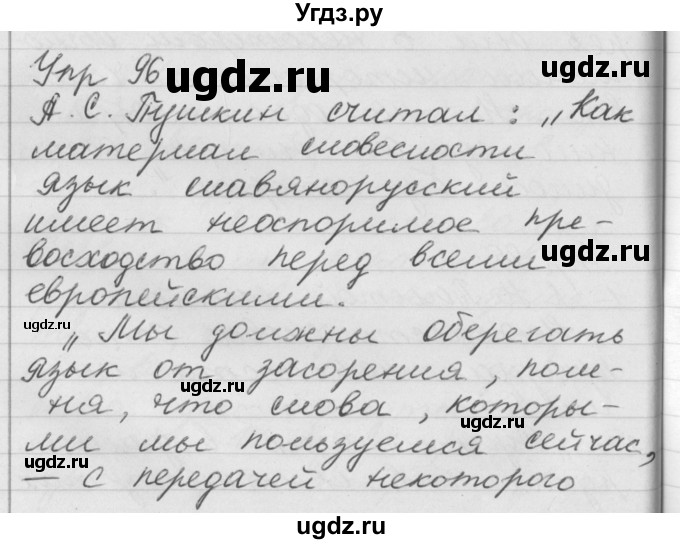 Угдз.ру
Упр 96
А. С. Пушкин считал: „Как
материал словесности
язык славянорусский
имеет неоспоримое пре-
восходство перед всеми
европейскими.
„Мы должны оберегать
язык от засорения, пом-
ня, что слова, которы-
ми мы пользуемся сейчас,
— с передачей некоторого
ugdz.ru
ugdz.ru
ugdz.ru
ugdz.ru
ugdz.ru
ugdz.ru
ugdz.ru
ugdz.ru